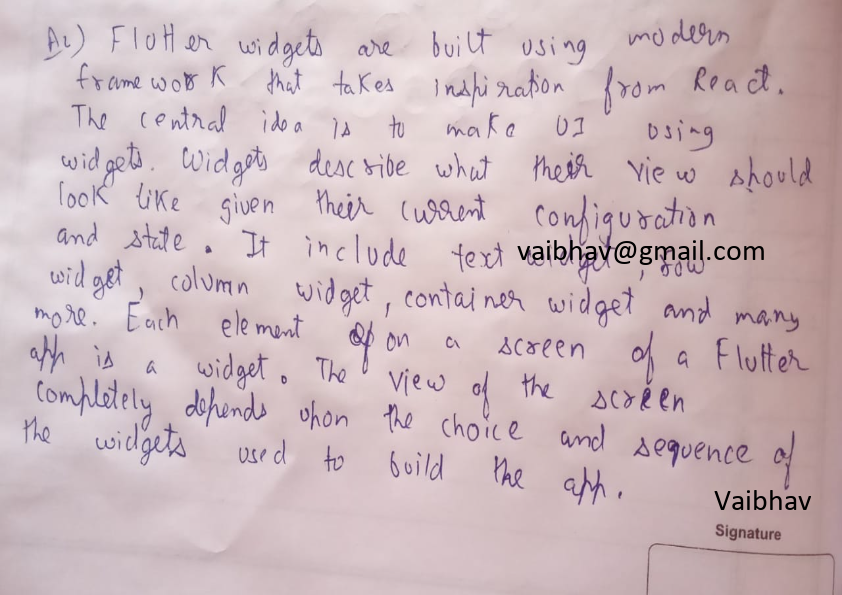 A2) Flutter widgets are built using modern
framework that takes inspiration from React.
The central idea is to make UI using
widgets. Widgets describe what their view should
look like given their current configuration
and state. It include text widget, row
vaibhav@gmail.com
widget, column widget, container widget and many
more. Each element on a screen of a Flutter
app is a widget. The view of the screen
completely depends upon the choice and sequence of
the widgets used to build the app.
Vaibhav
Signature